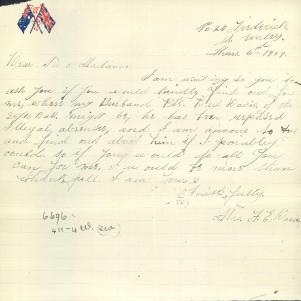 Mars. 6th 1919.
Dear Sir or Madam
I am writing to you to
ask you if you would kindly find out for
me, where my Husband Pte. Fred Davis of the
27th Batt. might be he has been reported
Illegal absentee, and I am anxious to try
and find out about him if I possibly
could so if you would do all you
can for me, I would be more than
thankfull. I am yours
Faithfully.
Mrs. F. E. Davis
6696